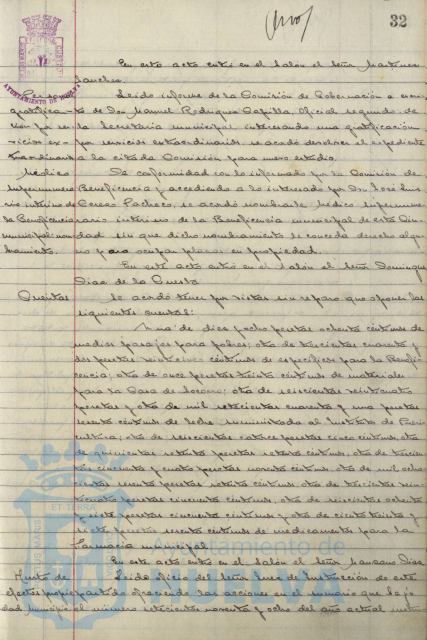 32
AYUNTAMIENTO DE HUELVA
En este acto entró en el Salón el Señor Martínez
Sánchez.
Leído informe de la Comisión de Gobernación a escri-
to de Don Manuel Rodríguez Capilla, Oficial segundo de
la Secretaría municipal, interesando una gratificación
por servicios extraordinarios, se acordó devolver el expediente
a la citada Comisión para nuevo estudio.
gratifica-
ción por ser-
vicios ex-
traordinarios
De conformidad con lo informado por la Comisión de
Beneficencia y accediendo a lo interesado por Don José
Pacheco, se acordó nombrarle Médico supernume-
rario interino de la Beneficencia municipal de esta Ciu-
dad sin que dicho nombramiento le conceda derecho algu-
no para ocupar plazas en propiedad.
Médico
supernumera-
rio interino de
la Beneficencia
municipal: nom-
bramiento.
En este acto entró en el Salón el Señor Domínguez
Díaz de la Cuesta
Cuentas
Se acordó tener por vistas sin reparo que oponer las
siguientes cuentas:
Una de dieciocho pesetas ochenta céntimos de
medios pasajes para pobres; otra de trescientas cuarenta y
dos pesetas veinticinco céntimos de específicos para la Benefi-
cencia; otra de once pesetas treinta céntimos de materiales
para la Casa de Socorro; otra de seiscientas veinticuatro
pesetas y otra de mil setecientas cuarenta y una pesetas
céntimos de leche suministrada al Instituto de Pueri-
cultura; otra de seiscientas catorce pesetas cinco céntimos, otra
de quinientas setenta pesetas céntimos, otra de trescien-
tas cincuenta y cuatro pesetas noventa céntimos, otra de mil ocho-
cientas pesetas céntimos, otra de trescientas vein-
ticuatro pesetas cincuenta céntimos, otra de seiscientas ochenta
y siete pesetas cincuenta céntimos y otra de ciento treinta y
siete pesetas céntimos de medicamentos para la
Farmacia municipal.
En este acto entró en el Salón el Señor Manzano Díaz
Leído oficio del Señor Juez de Instrucción de este
partido ofreciendo las acciones en el sumario que bajo
el número setecientos noventa y ocho del año actual
Ayuntamiento de